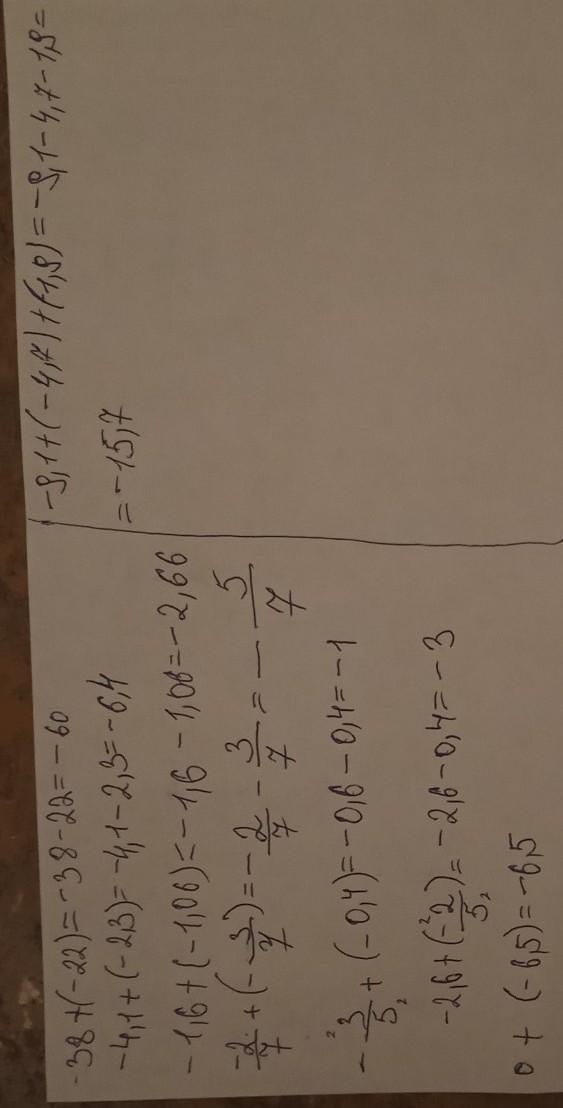 -38+(-22)=-38-22=-60
-4,1+(-2,3)=-4,1-2,3=-6,4
-1,6+(-1,06)=-1,6-1,06=-2,66
-2/7+(-3/7)=-2/7-3/7=-5/7
-3/5+(-0,4)=-0,6-0,4=-1
-2,6+(-2/5)=-2,6-0,4=-3
0+(-6,5)=-6,5
-9,1+(-4,7)+(-1,9)=-9,1-4,7-1,9=
=-15,7